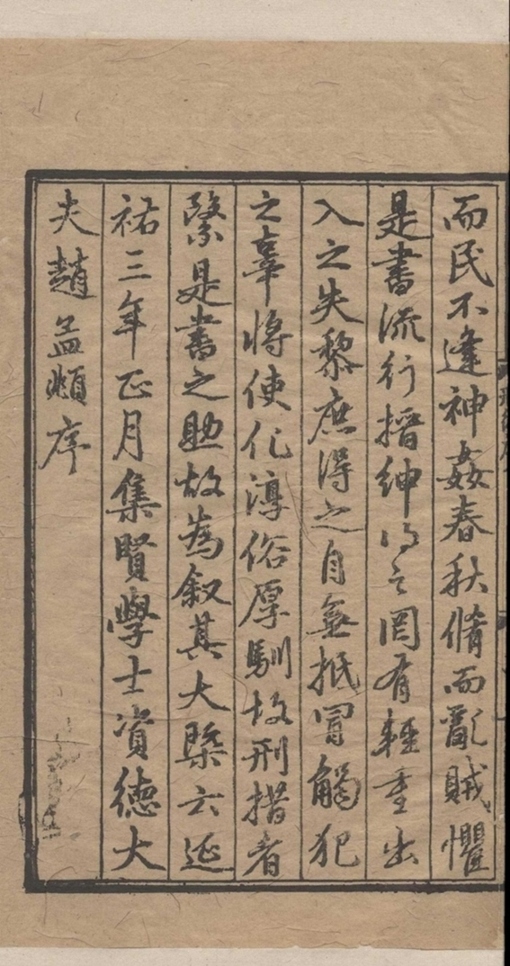 而民不逢神姦春秋脩而亂賊懼
是書流行搢紳得之罔有輕重出
入之失黎庶得之自無抵冒觸犯
之辜將使化淳俗厚馴致刑措者
緊是書之助故為叙其大槩云延
祐三年正月集賢學士資德大
夫趙孟頫序